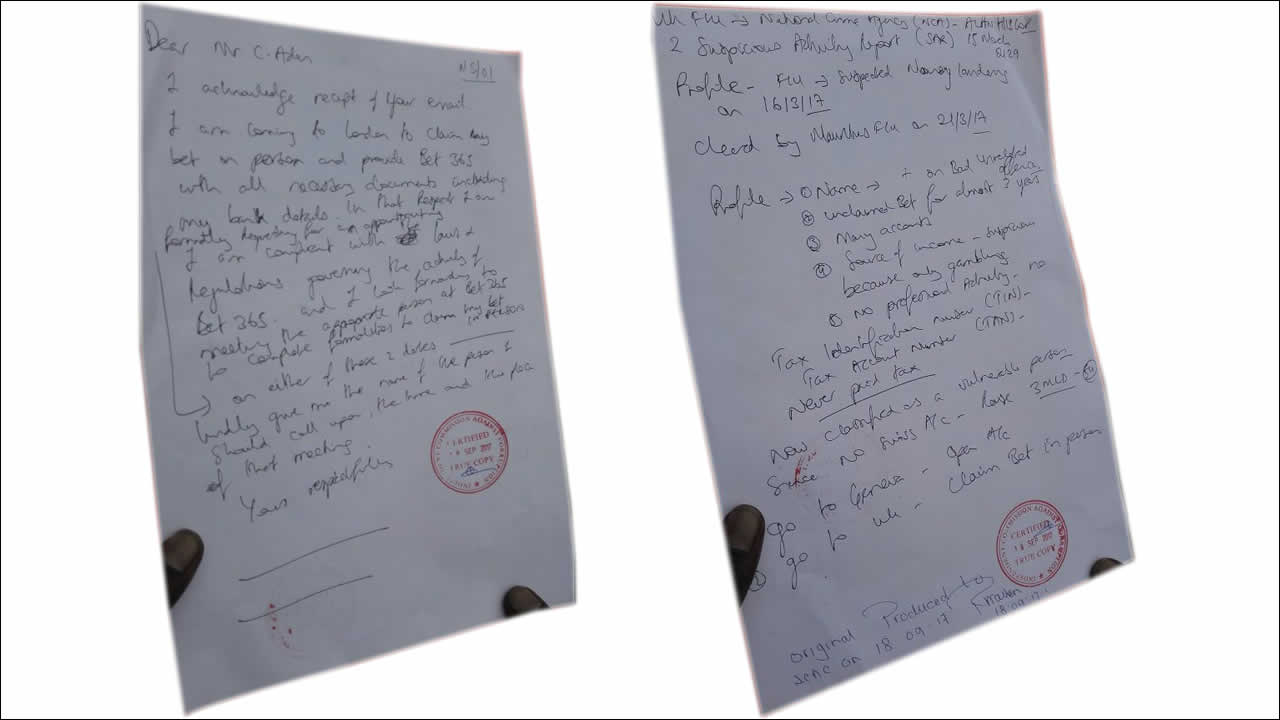 Dear Mr C. Adam
NS/01
I acknowledge receipt of your email.
I am coming to London to claim my
bet in person and provide Bet 365
with all necessary documents including
my bank details. In that Respect I am
formally Requesting for an appointment
I am compliant with laws &
Regulations governing the activity of
Bet 365. and I look forwarding to
meeting the appropriate person at Bet 365
to complete formalities to claim my bet
in person
on either of these 2 dates
kindly give me the name of the person I
should call upon, the time and the place
of that meeting.
Yours respectfully
INDEPENDENT COMMISSION AGAINST CORRUPTION
CERTIFIED
SEP 2017
TRUE COPY
Uk FIU → National Crime Agency (NCA) -
2 Suspicious Activity Report (SAR) 15 March
Profile - FIU → Suspected Money Laundering
on 16/3/17
Cleared by Mauritius FIU on 21/3/17
Profile → ① Name → + on Bad
② unclaimed Bet for almost 3 years
③ Many accounts
④ Source of income - suspicious
because only gambling
⑤ No professional Activity - no
Tax Identification number (TIN) -
Tax Account Number (TAN) -
Never paid tax
Now classified as a vulnerable person
Since no Swiss A/c - Raise 3 MLD -
go to Geneva - open A/c
② go to Uk - Claim Bet in person
INDEPENDENT COMMISSION AGAINST CORRUPTION
CERTIFIED
18 SEP 2017
TRUE COPY
Original Produced to
ICAC on 18.09.17
18.09.17